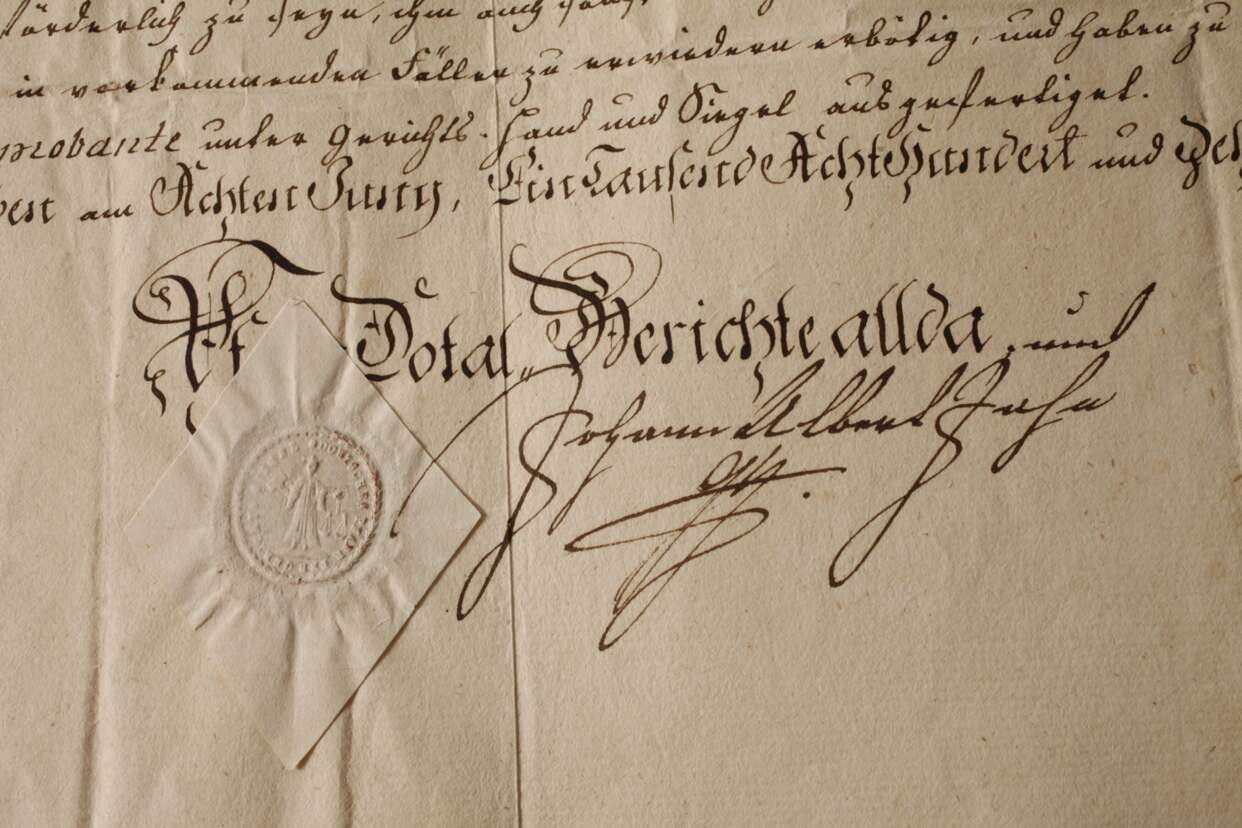 förderlich zu seyn, ihm auch sonst
in vorkommenden Fällen zu erwiedern erbötig, und haben zu
unter Gerichts-Hand und Siegel ausgefertiget.
am Achten Juny, Ein Tausend Acht Hundert und Zeh
Pf Dotal-Gerichte allda, und
Johann Albert Jahn